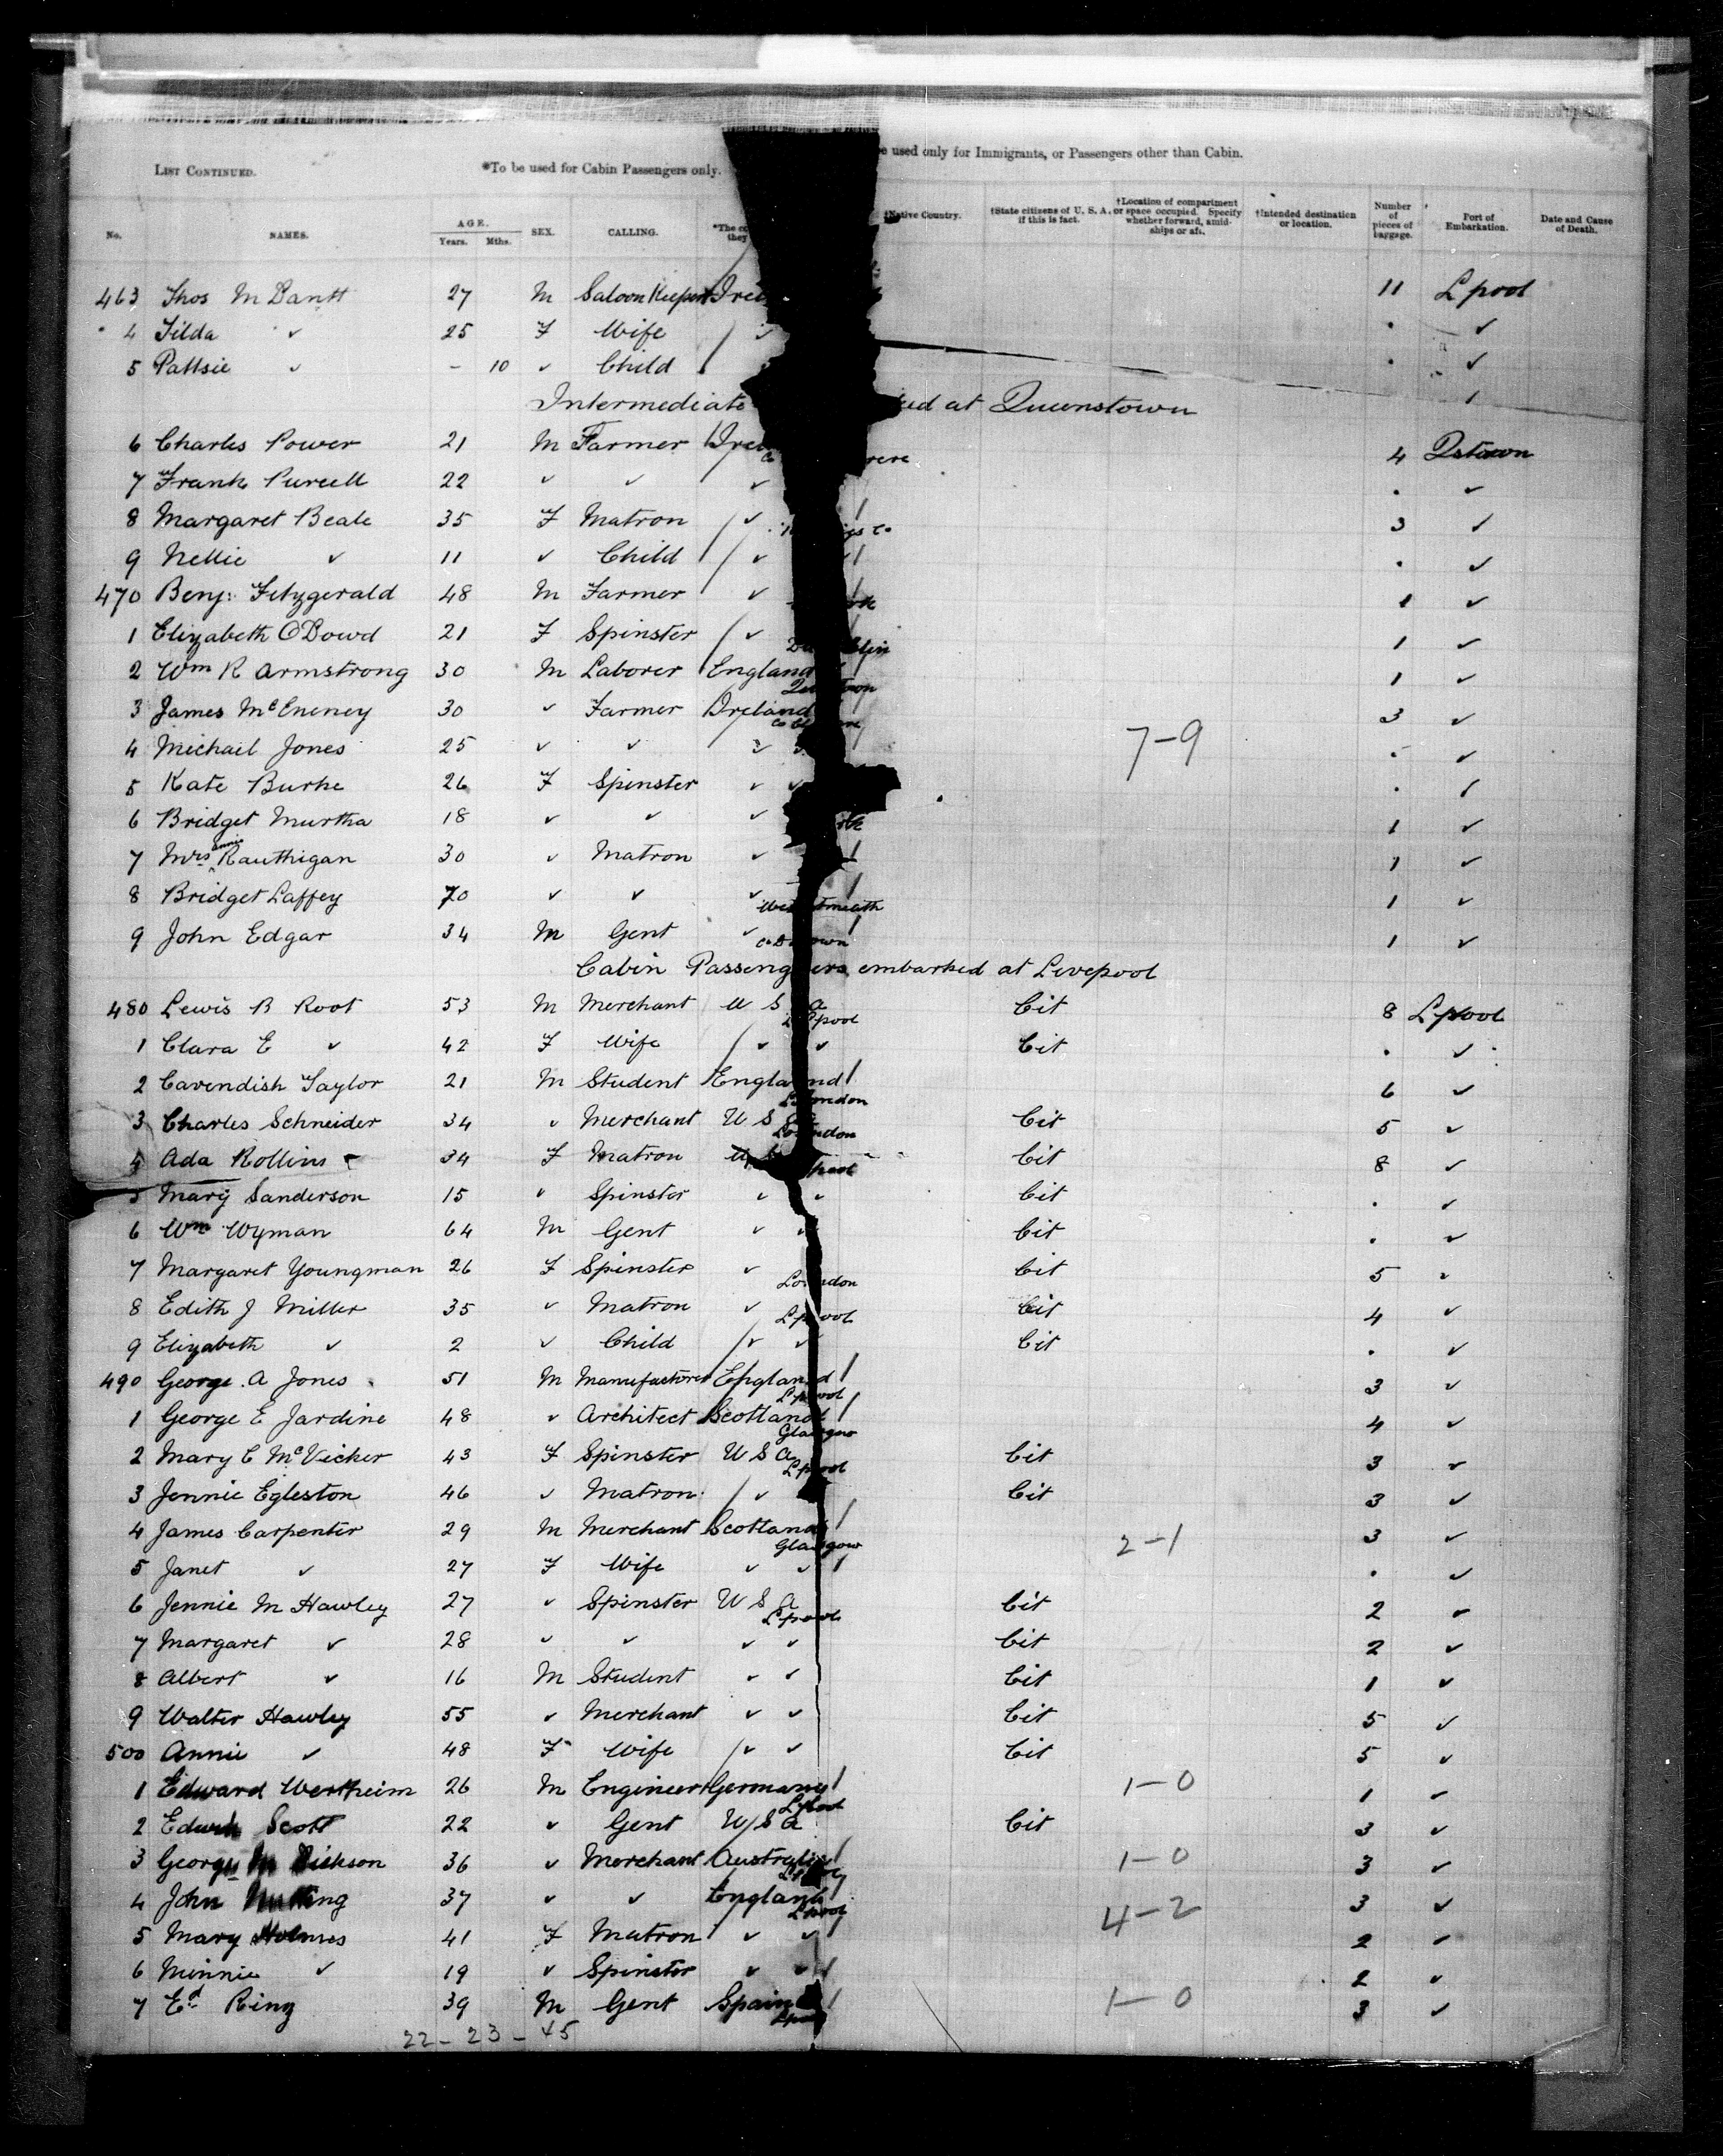 LIST CONTINUED. *To be used for Cabin Passengers only. used only for Immigrants, or Passengers other than Cabin.
No. NAMES. AGE. Years. Mths. SEX. CALLING. †Native Country. †State citizens of U. S. A. if this is fact. †Location of compartment or space occupied. Specify whether forward, amidships or aft. †Intended destination or location. Number of pieces of baggage. Port of Embarkation. Date and Cause of Death.
463 Thos 27 M Saloon Keeper 11 Lpool
4 Tilda ✓ 25 F Wife ✓ . ✓
5 Pattsie ✓ - 10 ✓ Child . ✓
Intermediate at Queenstown
6 Charles Power 21 M Farmer 4 Qstown
7 Frank Purcell 22 ✓ ✓ ✓ . ✓
8 Margaret Beale 35 F Matron ✓ 3 ✓
9 Nellie ✓ 11 ✓ Child ✓ . ✓
470 Benj: Fitzgerald 48 M Farmer ✓ 1 ✓
1 Elizabeth O'Dowd 21 F Spinster ✓ 1 ✓
2 Wm R Armstrong 30 M Laborer England 1 ✓
3 James McEneney 30 ✓ Farmer Ireland 3 ✓
4 Michail Jones 25 ✓ ✓ ✓ 7-9 . ✓
5 Kate Burke 26 F Spinster ✓ . ✓
6 Bridget Murtha 18 ✓ ✓ ✓ 1 ✓
7 Mrs Annie Rauthigan 30 ✓ Matron ✓ 1 ✓
8 Bridget Laffey 70 ✓ ✓ ✓ Westmeath 1 ✓
9 John Edgar 34 M Gent ✓ Co Down 1 ✓
Cabin Passengers embarked at Levepool
480 Lewis B Root 53 M Merchant U S A Lpool Cit 8 Lpool
1 Clara E ✓ 42 F Wife ✓ ✓ Cit . ✓
2 Cavendish Taylor 21 M Student England London 6 ✓
3 Charles Schneider 34 ✓ Merchant U S London Cit 5 ✓
4 Ada Rollins 34 F Matron Cit 8 ✓
5 Mary Sanderson 15 ✓ Spinster ✓ ✓ Cit . ✓
6 Wm Wyman 64 M Gent ✓ ✓ Cit . ✓
7 Margaret Youngman 26 F Spinster ✓ London Cit 5 ✓
8 Edith J Miller 35 ✓ Matron ✓ Lpool Cit 4 ✓
9 Elizabeth ✓ 2 ✓ Child ✓ ✓ Cit . ✓
490 George A Jones 51 M Manufacturer England Lpool 3 ✓
1 George E Jardine 48 ✓ Architect Scotland Glasgow 4 ✓
2 Mary C McVicker 43 F Spinster U S A Lpool Cit 3 ✓
3 Jennie Egleston 46 ✓ Matron ✓ Cit 3 ✓
4 James Carpenter 29 M Merchant Scotland Glasgow 2-1 3 ✓
5 Janet ✓ 27 F Wife ✓ ✓ . ✓
6 Jennie M Hawley 27 ✓ Spinster U S A Lpool Cit 2 ✓
7 Margaret ✓ 28 ✓ ✓ ✓ ✓ Cit 2 ✓
8 Albert ✓ 16 M Student ✓ ✓ Cit 1 ✓
9 Walter Hawley 55 ✓ Merchant ✓ ✓ Cit 5 ✓
500 Annie ✓ 48 F Wife ✓ ✓ Cit 5 ✓
1 Edward Wertheim 26 M Engineer Germany Lpool 1-0 1 ✓
2 Scott 22 ✓ Gent U S A Cit 3 ✓
3 George M Dickson 36 ✓ Merchant Australia 1-0 3 ✓
4 John 37 ✓ ✓ England Lpool 4-2 3 ✓
5 Mary Holmes 41 F Matron ✓ ✓ 2 ✓
6 Minnie ✓ 19 ✓ Spinster ✓ ✓ 2 ✓
7 Ed Ring 39 M Gent Spain 1-0 3 ✓
22 - 23 - 45